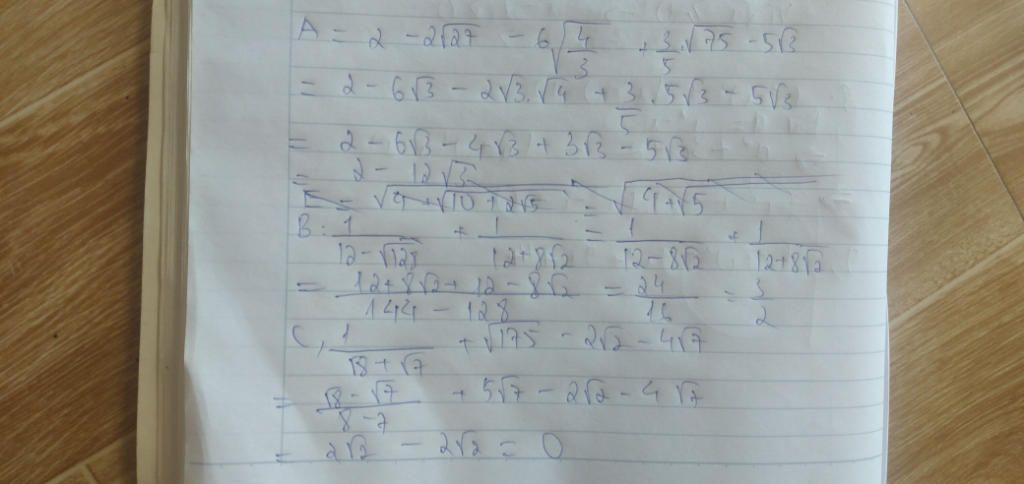 A = 2 - 2√27 - 6√(4/3) + 3/5.√75 - 5√3
= 2 - 6√3 - 2√3.√4 + 3/5 . 5√3 - 5√3
= 2 - 6√3 - 4√3 + 3√3 - 5√3
= 2 - 12√3
B: 1/(12-√128) + 1/(12+8√2) = 1/(12-8√2) + 1/(12+8√2)
= (12+8√2+12-8√2)/(144-128) = 24/16 = 3/2
C, 1/(√8+√7) + √175 - 2√2 - 4√7
= (√8-√7)/(8-7) + 5√7 - 2√2 - 4√7
= 2√2 - 2√2 = 0